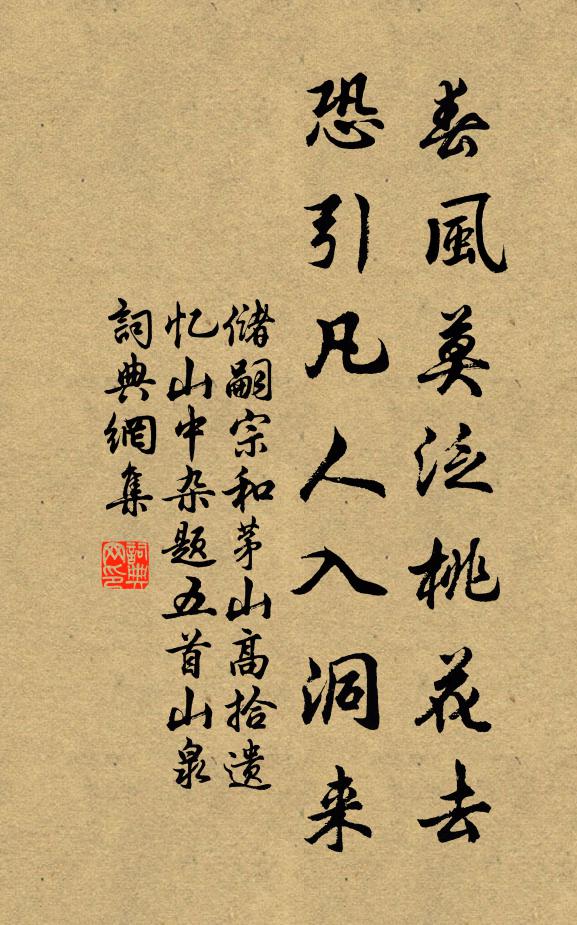 春風莫泛桃花去
恐引凡人入洞来
儲嗣宗和茅山高拾遗
忆山中杂题五首山泉
詞典網集
詞典
网印